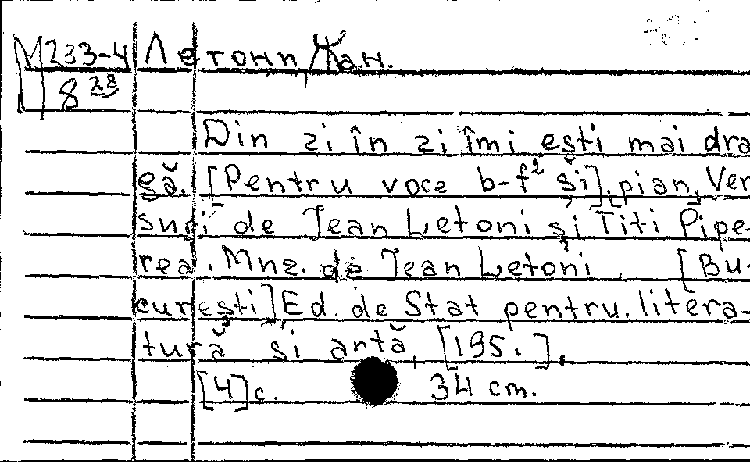 М233-4 Летони, Жан.
8 23
Din zi în zi îmi ești mai dra
gă. [Pentru voce b-f² și], pian, Ver
suri de Jean Letoni și Titi Pipe
rea. Mnz. de Jean Letoni. [Bu-
curesti] Ed. de Stat pentru litera-
tură și artă, [195.].
[4]c. 34 cm.